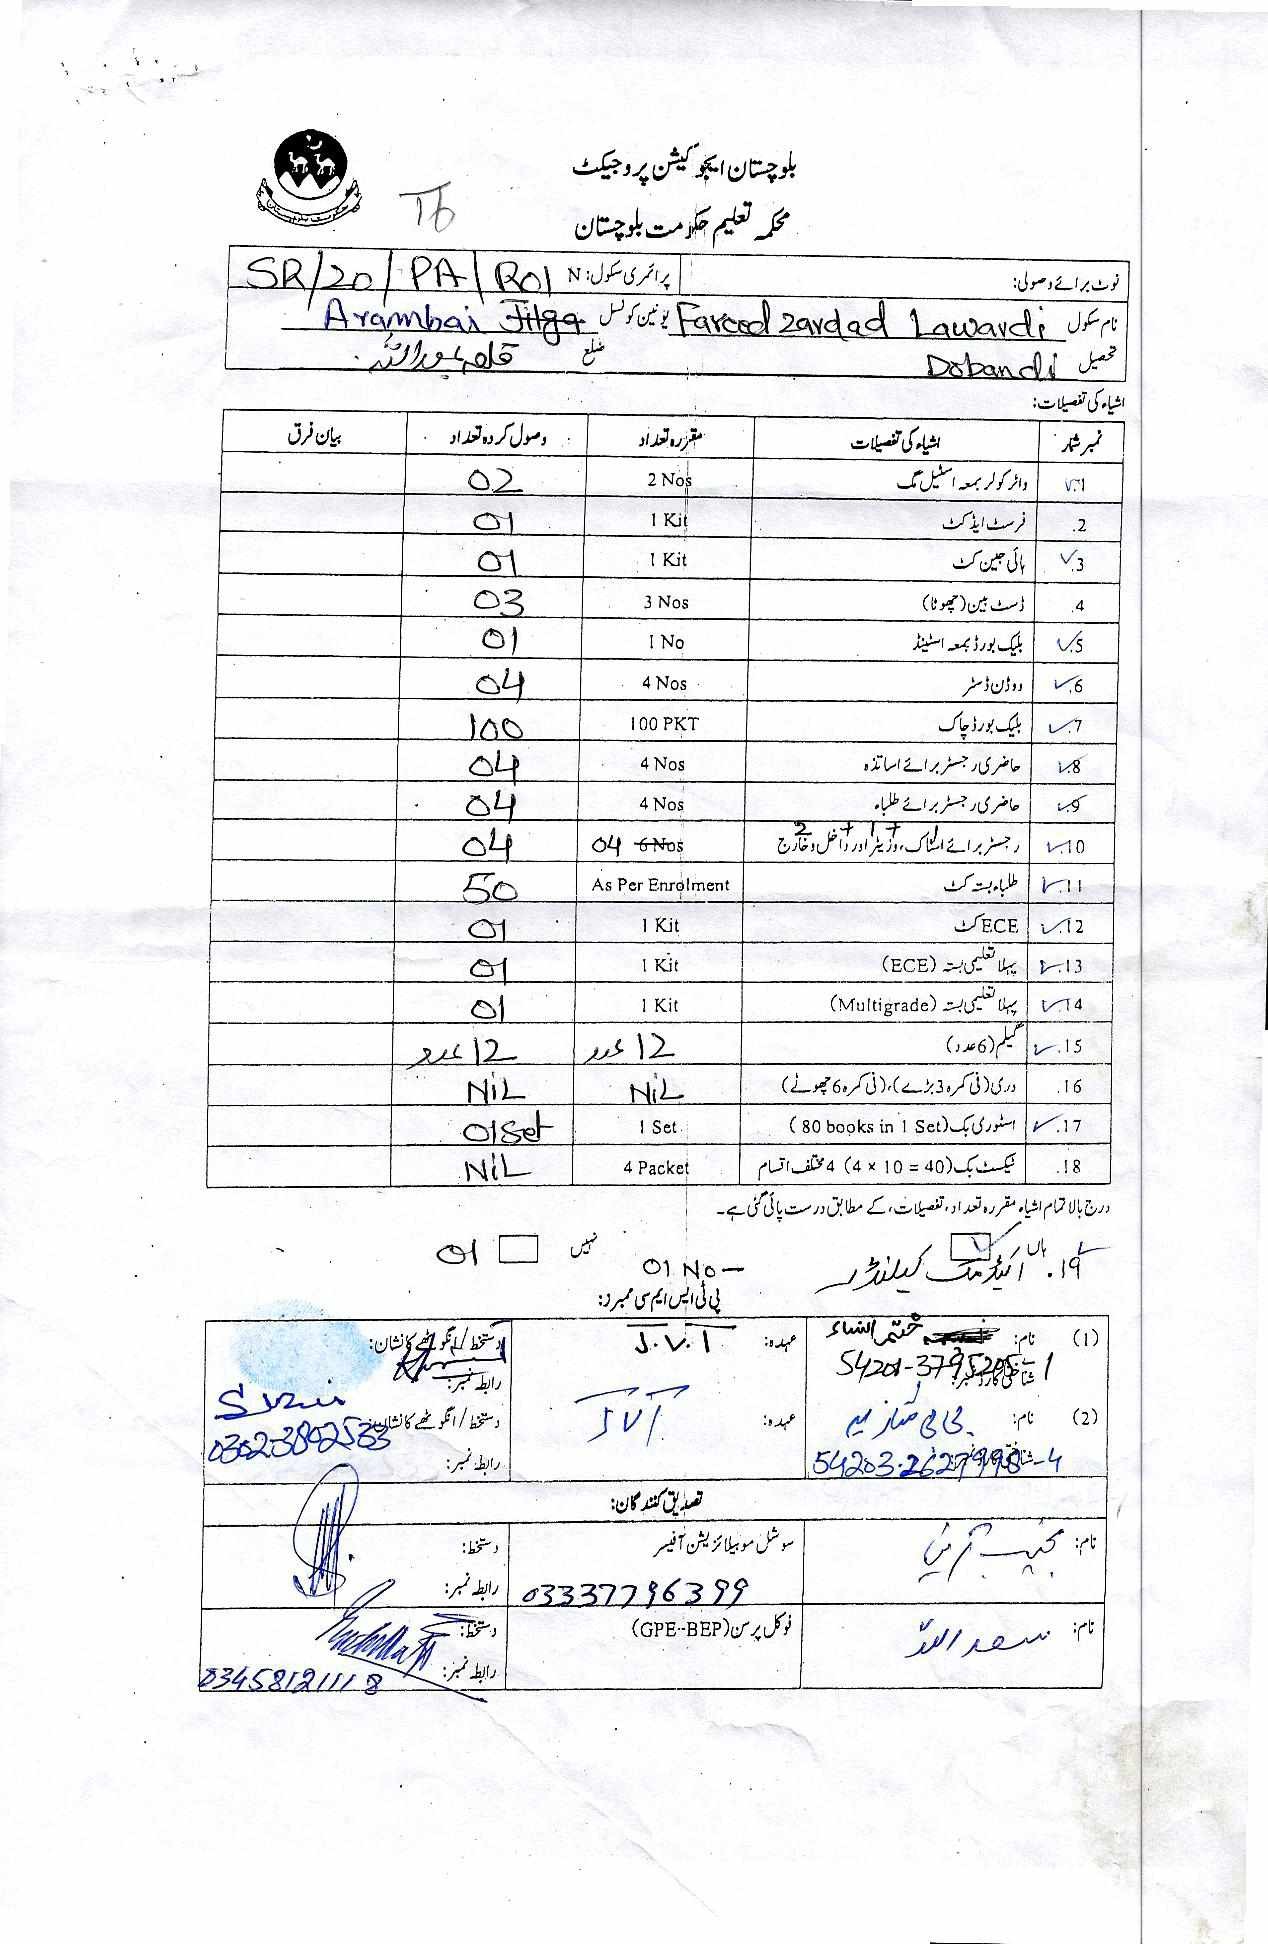 بلوچستان ایجوکیشن پروجیکٹ
محکمہ تعلیم حکومت بلوچستان
نوٹ برائے وصولی: پرائمری سکول: N SR/20/PA/R01
نام سکول Fareed zardad Lawardi یونین کونسل Arambai Jilga
تحصیل Dobandi ضلع قلعہ عبداللہ
اشیاء کی تفصیلات:
نمبر شمار اشیاء کی تفصیلات مقررہ تعداد وصول کردہ تعداد بیان فرق
1. واٹر کولر بمعہ اسٹیل مگ 2 Nos 02
2. فرسٹ ایڈ کٹ 1 Kit 01
3. ہائی جین کٹ 1 Kit 01
4. ڈسٹ بین (چھوٹا) 3 Nos 03
5. بلیک بورڈ بمعہ اسٹینڈ 1 No 01
6. ووڈن ڈسٹر 4 Nos 04
7. بلیک بورڈ چاک 100 PKT 100
8. حاضری رجسٹر برائے اساتذہ 4 Nos 04
9. حاضری رجسٹر برائے طلباء 4 Nos 04
10. رجسٹر برائے اسٹاک، وزیٹر اور داخل و خارج 2 + 1 + 1 04 6 Nos 04
11. طلباء بستہ کٹ As Per Enrolment 50
12. ECE کٹ 1 Kit 01
13. پہلا تعلیمی بستہ (ECE) 1 Kit 01
14. پہلا تعلیمی بستہ (Multigrade) 1 Kit 01
15. گلیم (6 عدد) 12 عدد 12 عدد
16. دری (فی کمرہ 3 بڑے)، (فی کمرہ 6 چھوٹے) NiL NiL
17. اسٹوری بک (80 books in 1 Set) 1 Set 01 Set
18. ٹیکسٹ بک (4 × 10 = 40) 4 مختلف اقسام 4 Packet NiL
درج بالا تمام اشیاء مقررہ تعداد، تفصیلات، کے مطابق درست پائی گئی ہے۔
ہاں نہیں
19. اکیڈمک کیلنڈر 01 No 01
پی ٹی ایس ایم سی ممبرز:
(1) نام: ختم النساء عہدہ: J.V.T دستخط / انگوٹھے کا نشان:
شناختی کارڈ نمبر: 54201-3795205-1 رابطہ نمبر:
(2) نام: عہدہ: دستخط / انگوٹھے کا نشان:
54203-2627998-4 رابطہ نمبر: 03023802533
تصدیق کنندگان:
نام: سوشل موبیلائزیشن آفیسر دستخط:
03337796399 رابطہ نمبر:
نام: سعد اللہ فوکل پرسن (GPE-BEP) دستخط:
رابطہ نمبر: 03458121118